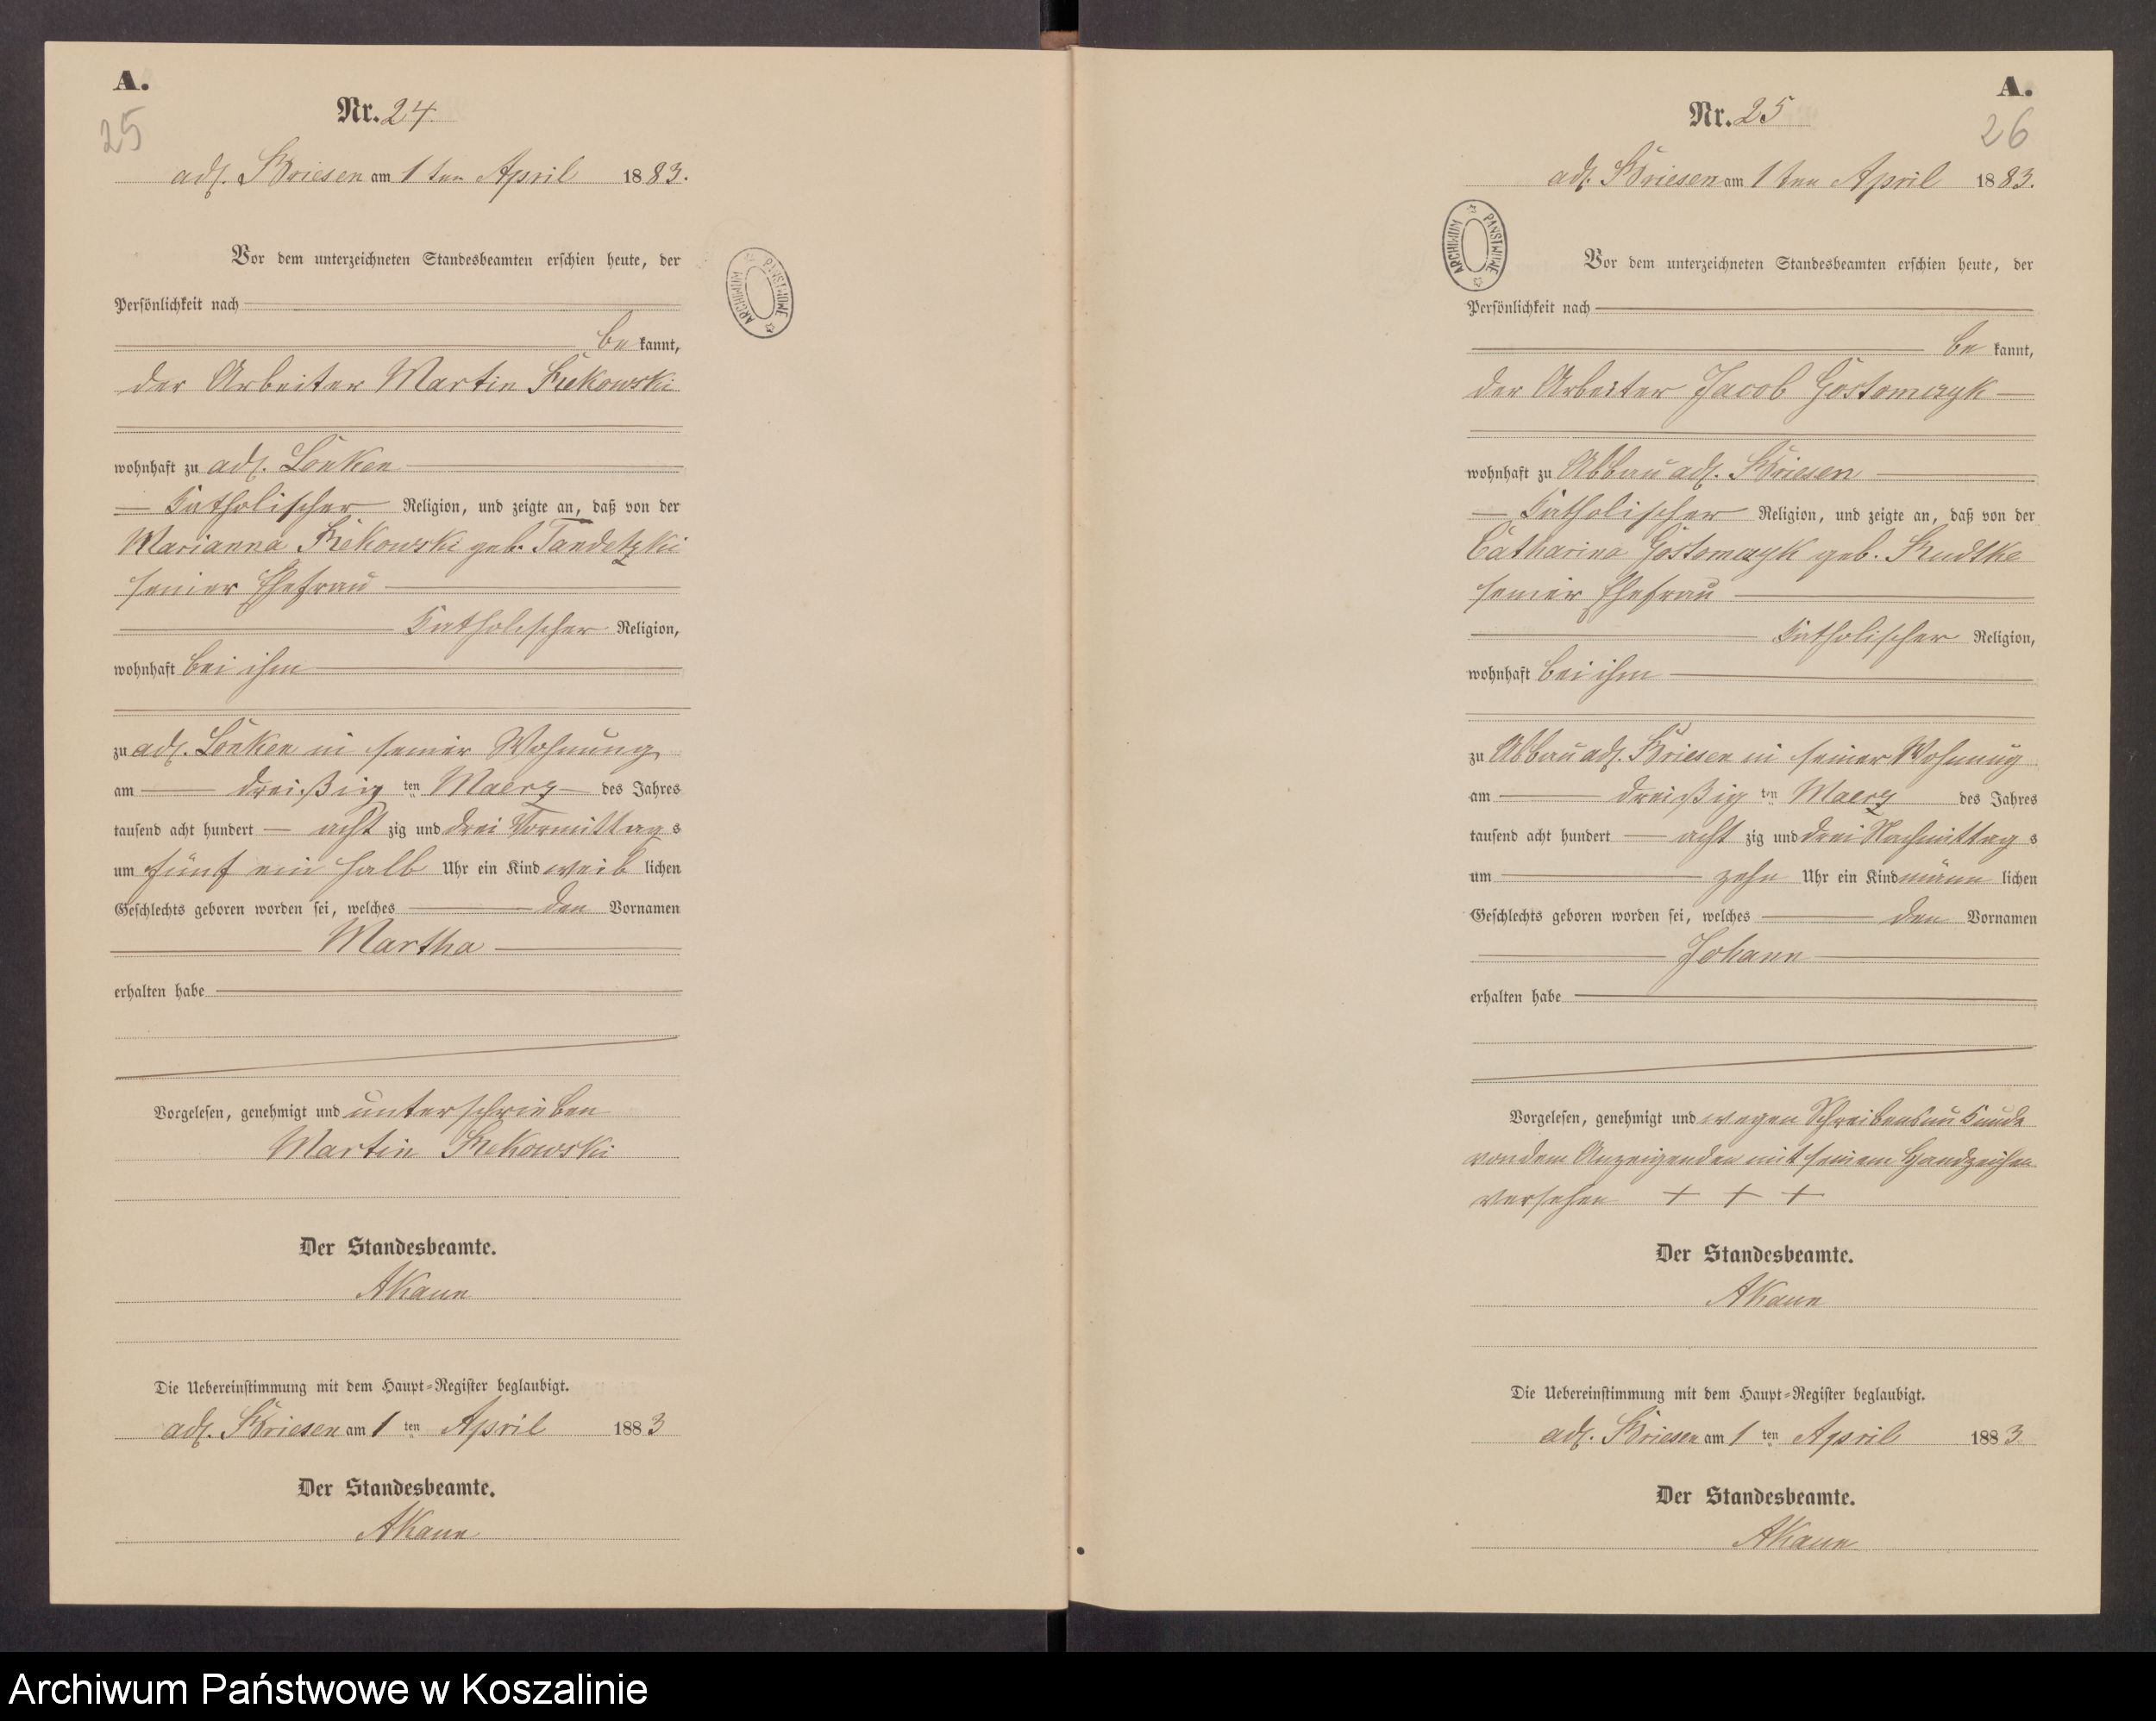 A.
25
Nr. 24.
adl. Briesen am 1ten April 1883.
Vor dem unterzeichneten Standesbeamten erschien heute, der
Persönlichkeit nach
be kannt,
der Arbeiter Martin
wohnhaft zu adl. Lonken
Katholischer Religion, und zeigte an, daß von der
Marianna geb. Tandetzki
seiner Ehefrau
Katholischer Religion,
wohnhaft bei ihm
zu adl. Lonken in seiner Wohnung
am dreißig ten Maerz des Jahres
tausend acht hundert acht zig und drei Vormittag s
um fünf ein halb Uhr ein Kind weib lichen
Geschlechts geboren worden sei, welches den Vornamen
Martha
erhalten habe
Vorgelesen, genehmigt und unterschrieben
Martin
Der Standesbeamte.
Die Uebereinstimmung mit dem Haupt=Register beglaubigt.
adl. Briesen am 1 ten April 1883
Der Standesbeamte.
ARCHIWUM PAŃSTWOWE
A.
26
Nr. 25
adl. Briesen am 1ten April 1883.
ARCHIWUM PAŃSTWOWE
Vor dem unterzeichneten Standesbeamten erschien heute, der
Persönlichkeit nach
be kannt,
der Arbeiter Jacob Gostomczyk
wohnhaft zu Abbau adl. Briesen
Katholischer Religion, und zeigte an, daß von der
Catharina Gostomczyk geb.
seiner Ehefrau
Katholischer Religion,
wohnhaft bei ihm
zu Abbau adl. Briesen in seiner Wohnung
am dreißig ten Maerz des Jahres
tausend acht hundert acht zig und drei Nachmittag s
um zehn Uhr ein Kind männ lichen
Geschlechts geboren worden sei, welches den Vornamen
Johann
erhalten habe
Vorgelesen, genehmigt und wegen Schreibensunkunde
von dem Anzeigenden mit seinem Handzeichen
versehen + + +
Der Standesbeamte.
Die Uebereinstimmung mit dem Haupt=Register beglaubigt.
adl. Briesen am 1 ten April 1883
Der Standesbeamte.
Archiwum Państwowe w Koszalinie